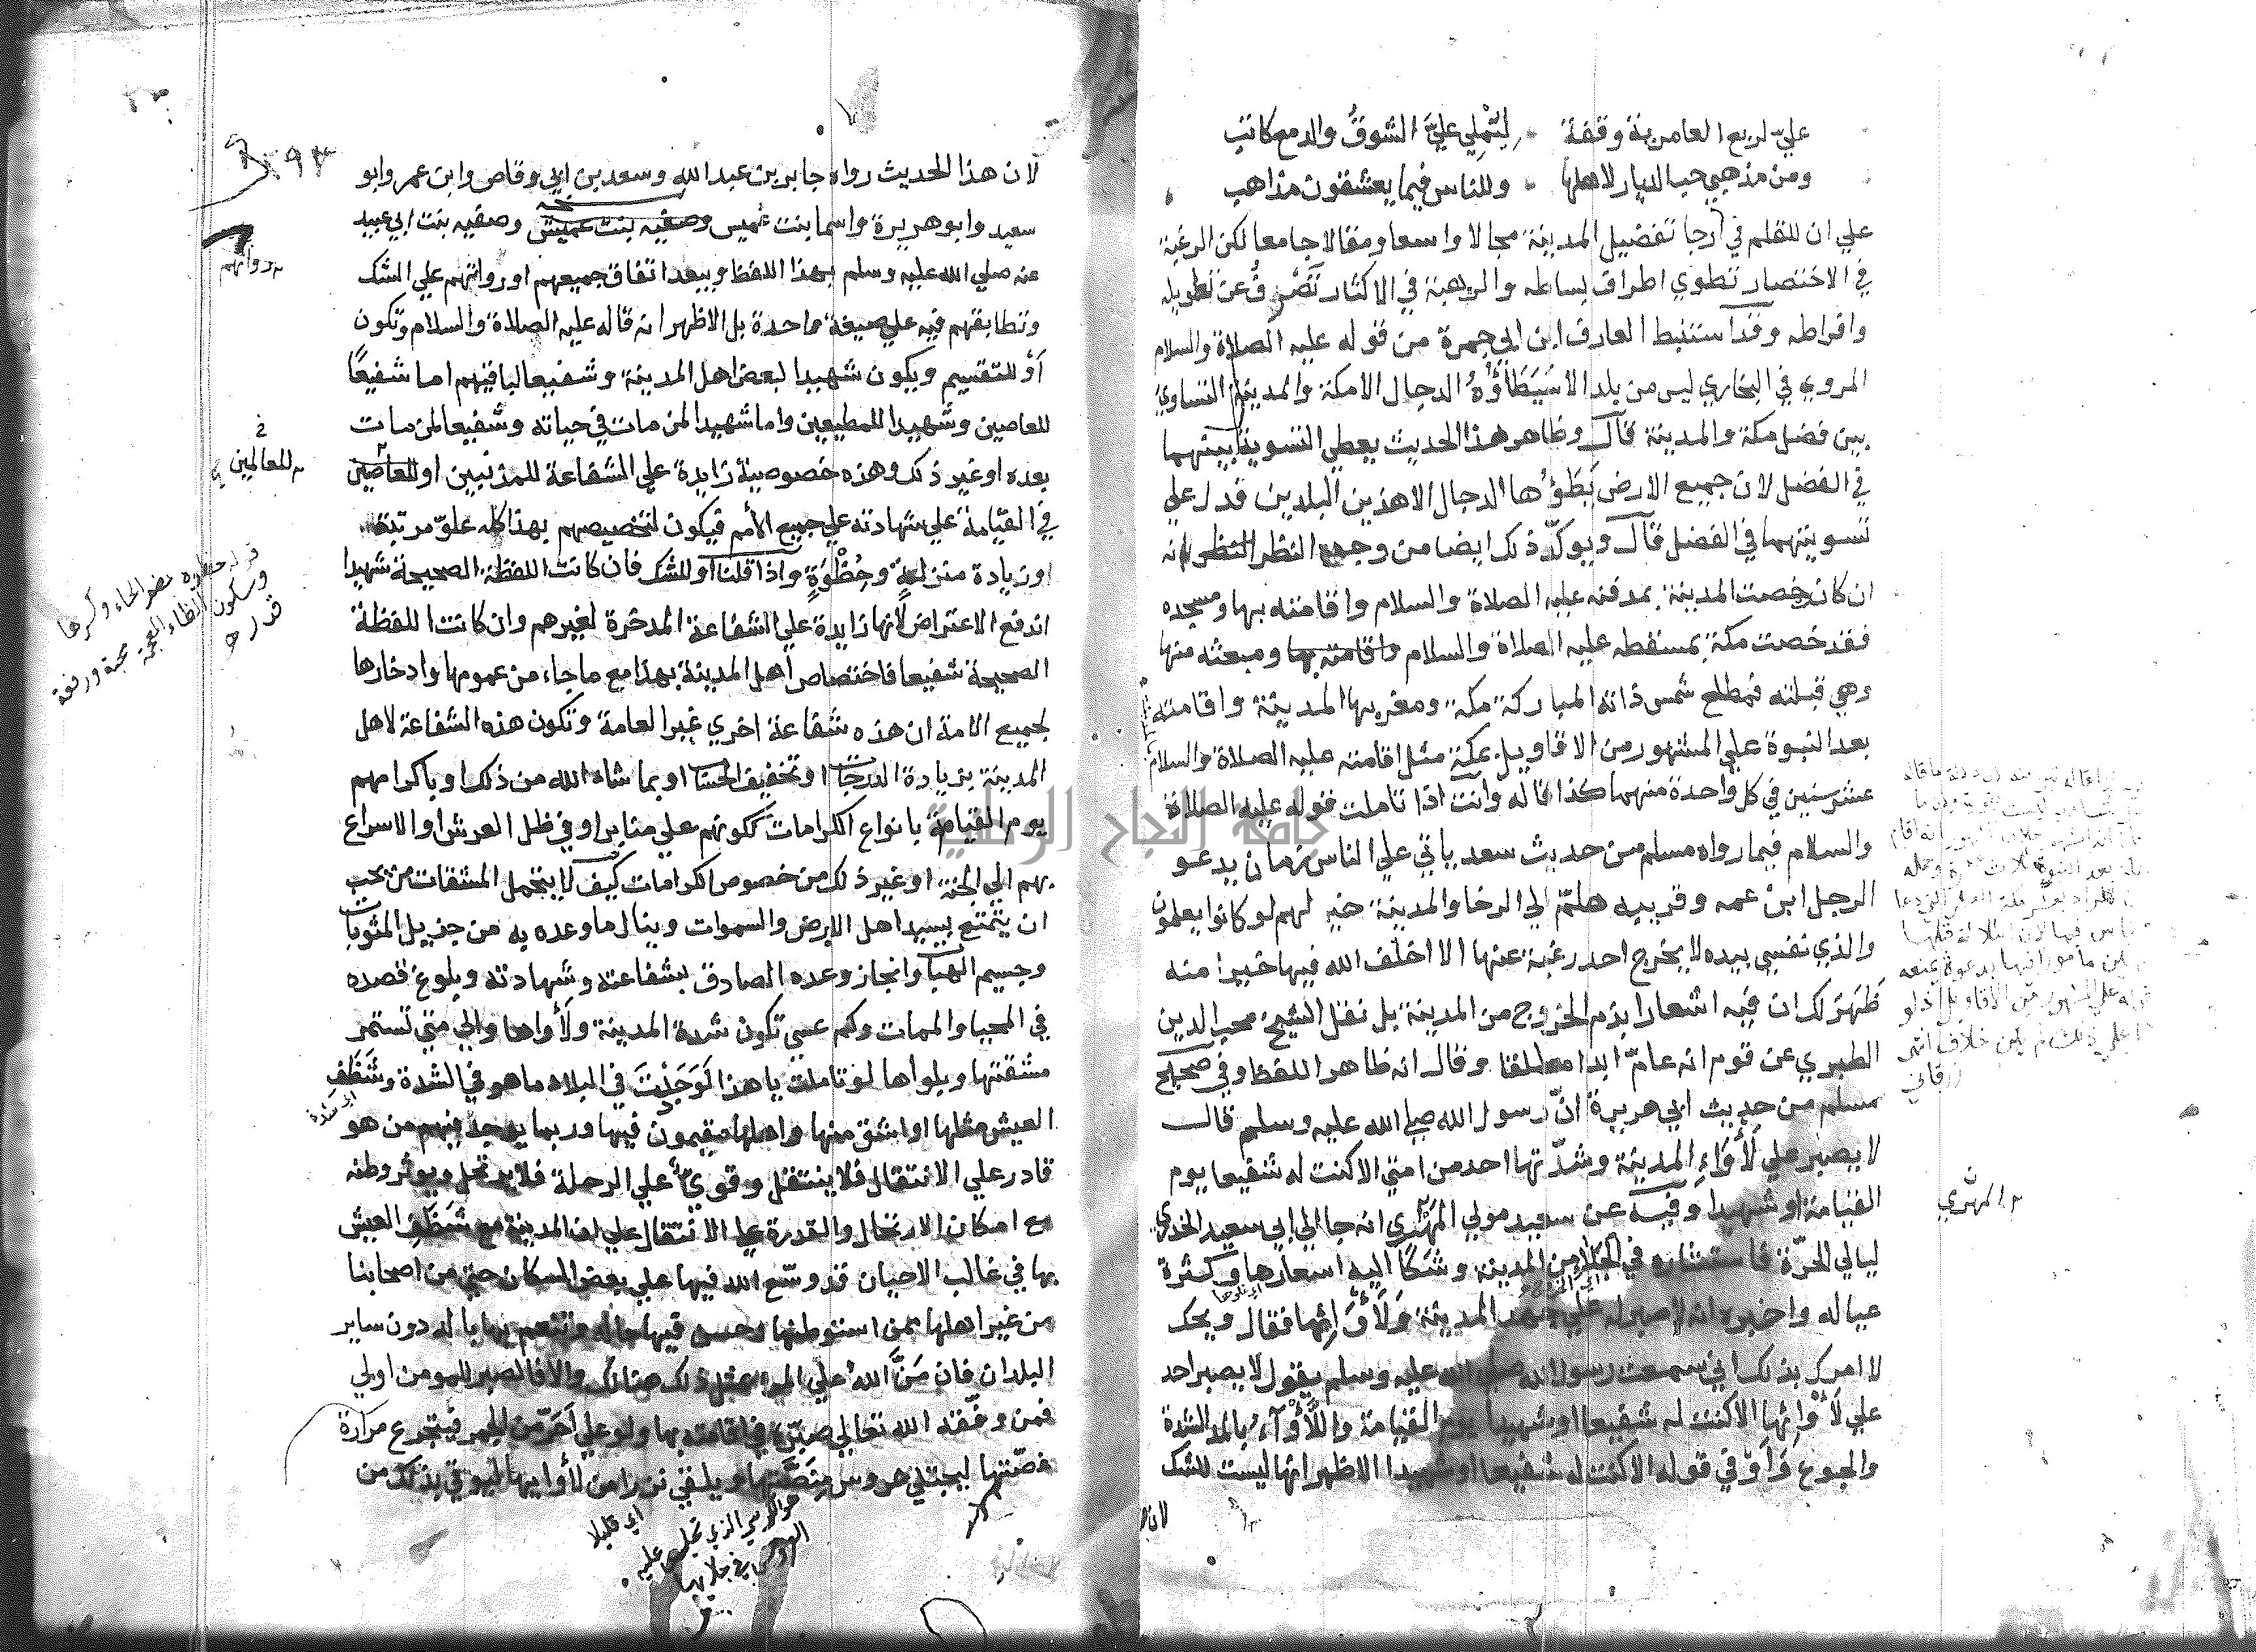 عليّ لربع العامرية وقفة . لِيُمْلِي عَلَيَّ الشوقُ والدمع كاتب
ومن مذهبي حب الديار لاهلها . وللناس فيما يعشقون مذاهب
علي ان للقلم في ارجا تفضيل المدينة مجالا واسعا ومقالا جامعا لكن الرغبة
في الاختصار تطوي اطراف بساطه والرهبة في الاكثار تَصْرِفُ عن تطويله
وافراطه وقد استنبط العارف ابن ابي جمرة من قوله عليه الصلاة والسلام
المروي في البخاري ليس من بلد الا سَيَطَأُهُ الدجال الا مكة والمدينة التساوي
بين فضل مكة والمدينة قال وظاهر هذا الحديث يعطي التسوية بينهما
في الفضل لان جميع الارض يَطَؤُها الدجال الا هذين البلدين فدل علي
تسويتهما في الفضل قال ويوكّد ذلك ايضا من وجوه النظر لانه
ان كان خصت المدينة بمدفنه عليه الصلاة والسلام واقامته بها ومسجده
فقد خصت مكة بمسقطه عليه الصلاة والسلام واقامته بها ومبعثه منها
وهي قبلته فمطلع شمس ذاته المباركة مكة ومغربها المدينة واقامته
بعد النبوة علي المشهور من الاقاويل بمكة مثل اقامته عليه الصلاة والسلام
عشر سنين في كل واحدة منهما كذا قاله وانت اذا تاملت قوله عليه الصلاة
والسلام فيما رواه مسلم من حديث سعد ياتي علي الناس زمان يدعو
الرجل ابن عمه وقريبه هلمّ الي الرخا والمدينة خير لهم لو كانوا يعلمون
والذي نفسي بيده لا يخرج احد رغبة عنها الا اخلف الله فيها خيرا منه
ظَهَرَ لك ان فيه اشعارا بذم الخروج من المدينة بل نقل الشيخ محب الدين
الطبري عن قوم انه عامّ ابدا مطلقا وقال انه ظاهر اللفظ وفي صحيح
مسلم من حديث ابي هريرة انّ رسول الله صلي الله عليه وسلم قال
لا يصبر علي لَأْوَاءِ المدينة وشدّتها احد من امتي الا كنت له شفيعا يوم
القيامة او شهيدا وفيه عن سعيد مولي المَهْرِي انه جا الي ابي سعيد الخدري
ليالي الحرّة فاستشاره في الجَلاءِ من المدينة وشكا اليه اسعارها وكثرة
عياله واخبره انه لا صبر له علي جهد المدينة ولَأْوَائِها فقال ويحك
لا امرك بذلك اني سمعت رسول الله صلي الله عليه وسلم يقول لا يصبر احد
علي لَأْوَائِها الا كنت له شفيعا او شهيدا يوم القيامة واللَّأْوَآءُ بالمد الشدة
والجوع وَأَوْ في قوله الا كنت له شفيعا او شهيدا الاظهر انها ليست للشك
لان
المهري
زرقاني
لان هذا الحديث رواه جابر بن عبد الله وسعد بن ابي وقاص وابن عمر وابو
سعيد وابو هريرة واسما بنت عُميس وصفيه بنت عميش وصفيه بنت ابي عبيد
عنه صلي الله عليه وسلم بهذا اللفظ ويبعد اتفاق جميعهم او رواتهم علي الشك
وتطابقهم فيه علي صيغة واحدة بل الاظهر انه قاله عليه الصلاة والسلام وتكون
أَوْ للتقسيم ويكون شهيدا لبعض اهل المدينة وشفيعا لباقيهم اما شفيعًا
للعاصين وشهيدا للمطيعين واما شهيدا لمن مات في حياته وشفيعا لمن مات
بعده او غير ذلك وهذه خصوصية زايدة علي الشفاعة للمذنبين او للعاصين
في القيامة علي شهادته علي جميع الأمم فيكون لتخصيصهم بهذا كله علوّ مرتبة
او زيادة منزلة وحُِظْوَةٍ واذا قلنا أو للشك فان كانت اللفظة الصحيحة شهيدا
اندفع الاعتراض لأنها زايدة علي الشفاعة المدخرة لغيرهم وان كانت اللفظة
الصحيحة شفيعا فاختصاص اهل المدينة بهذا مع ما جاء من عمومها وادخارها
لجميع الامة ان هذه شفاعة اخري غير العامة وتكون هذه الشفاعة لاهل
المدينة بزيادة الدرجات او تخفيف الحساب او بما شاء الله من ذلك او باكرامهم
يوم القيامة بانواع الكرامات ككونهم علي منابر او في ظل العرش او الاسراع
بهم الي الجنة او غير ذلك من خصوص الكرامات كيف لا يتحمل المشقات من يحب
ان يتمتع بسيد اهل الارض والسموات وينال ما وعده به من جزيل المثوبات
وجسيم الهبات وانجاز وعده الصادق بشفاعته وشهادته وبلوغ قصده
في المحيا والممات وكم عسي تكون شدة المدينة ولَأْواها والي متي تستمر
مشقتها وبلواها لو تاملت يا هذا لَوَجَدْتَ في البلاد ما هو في الشدة وشَظَفِ
العيش مثلها او اشق منها واهلها مقيمون فيها وربما يوجد فيهم من هو
قادر علي الانتقال فلا ينتقل وقويّ علي الرحلة فلا يرتحل ويوثر وطنه
مع امكان الارتحال والقدرة علي الانتقال علي ان المدينة مع شَظَفِ العيش
بها في غالب الاحيان قد وسّع الله فيها علي بعض السكان حتي من اصحابنا
من غير اهلها ممن استوطنها وحسن فيها حاله وتنعم بها باله دون ساير
البلدان فان مَنَّ الله علي المرء بمثل ذلك هنالك والا فالصبر للمومن اولي
فمن وفّقه الله تعالي صبّره في اقامته بها ولو علي أَحَرّ من الجمر فيتجرع مرارة
غصّتها ليجتلي عروس مِنَصَّتِها ويلقي نزرا من لأوايها ليوقي بذلك من
رواتهم
للعالمين
قوله حظوه بضم الحاء وكسرها
وسكون الظاء المعجمة محبة ورفعة
قدر اهـ
اي شدة
اي قليلا
هو الكرسي الذي تجلس عليه
العروس في جلائها
جامعة النجاح الوطنية